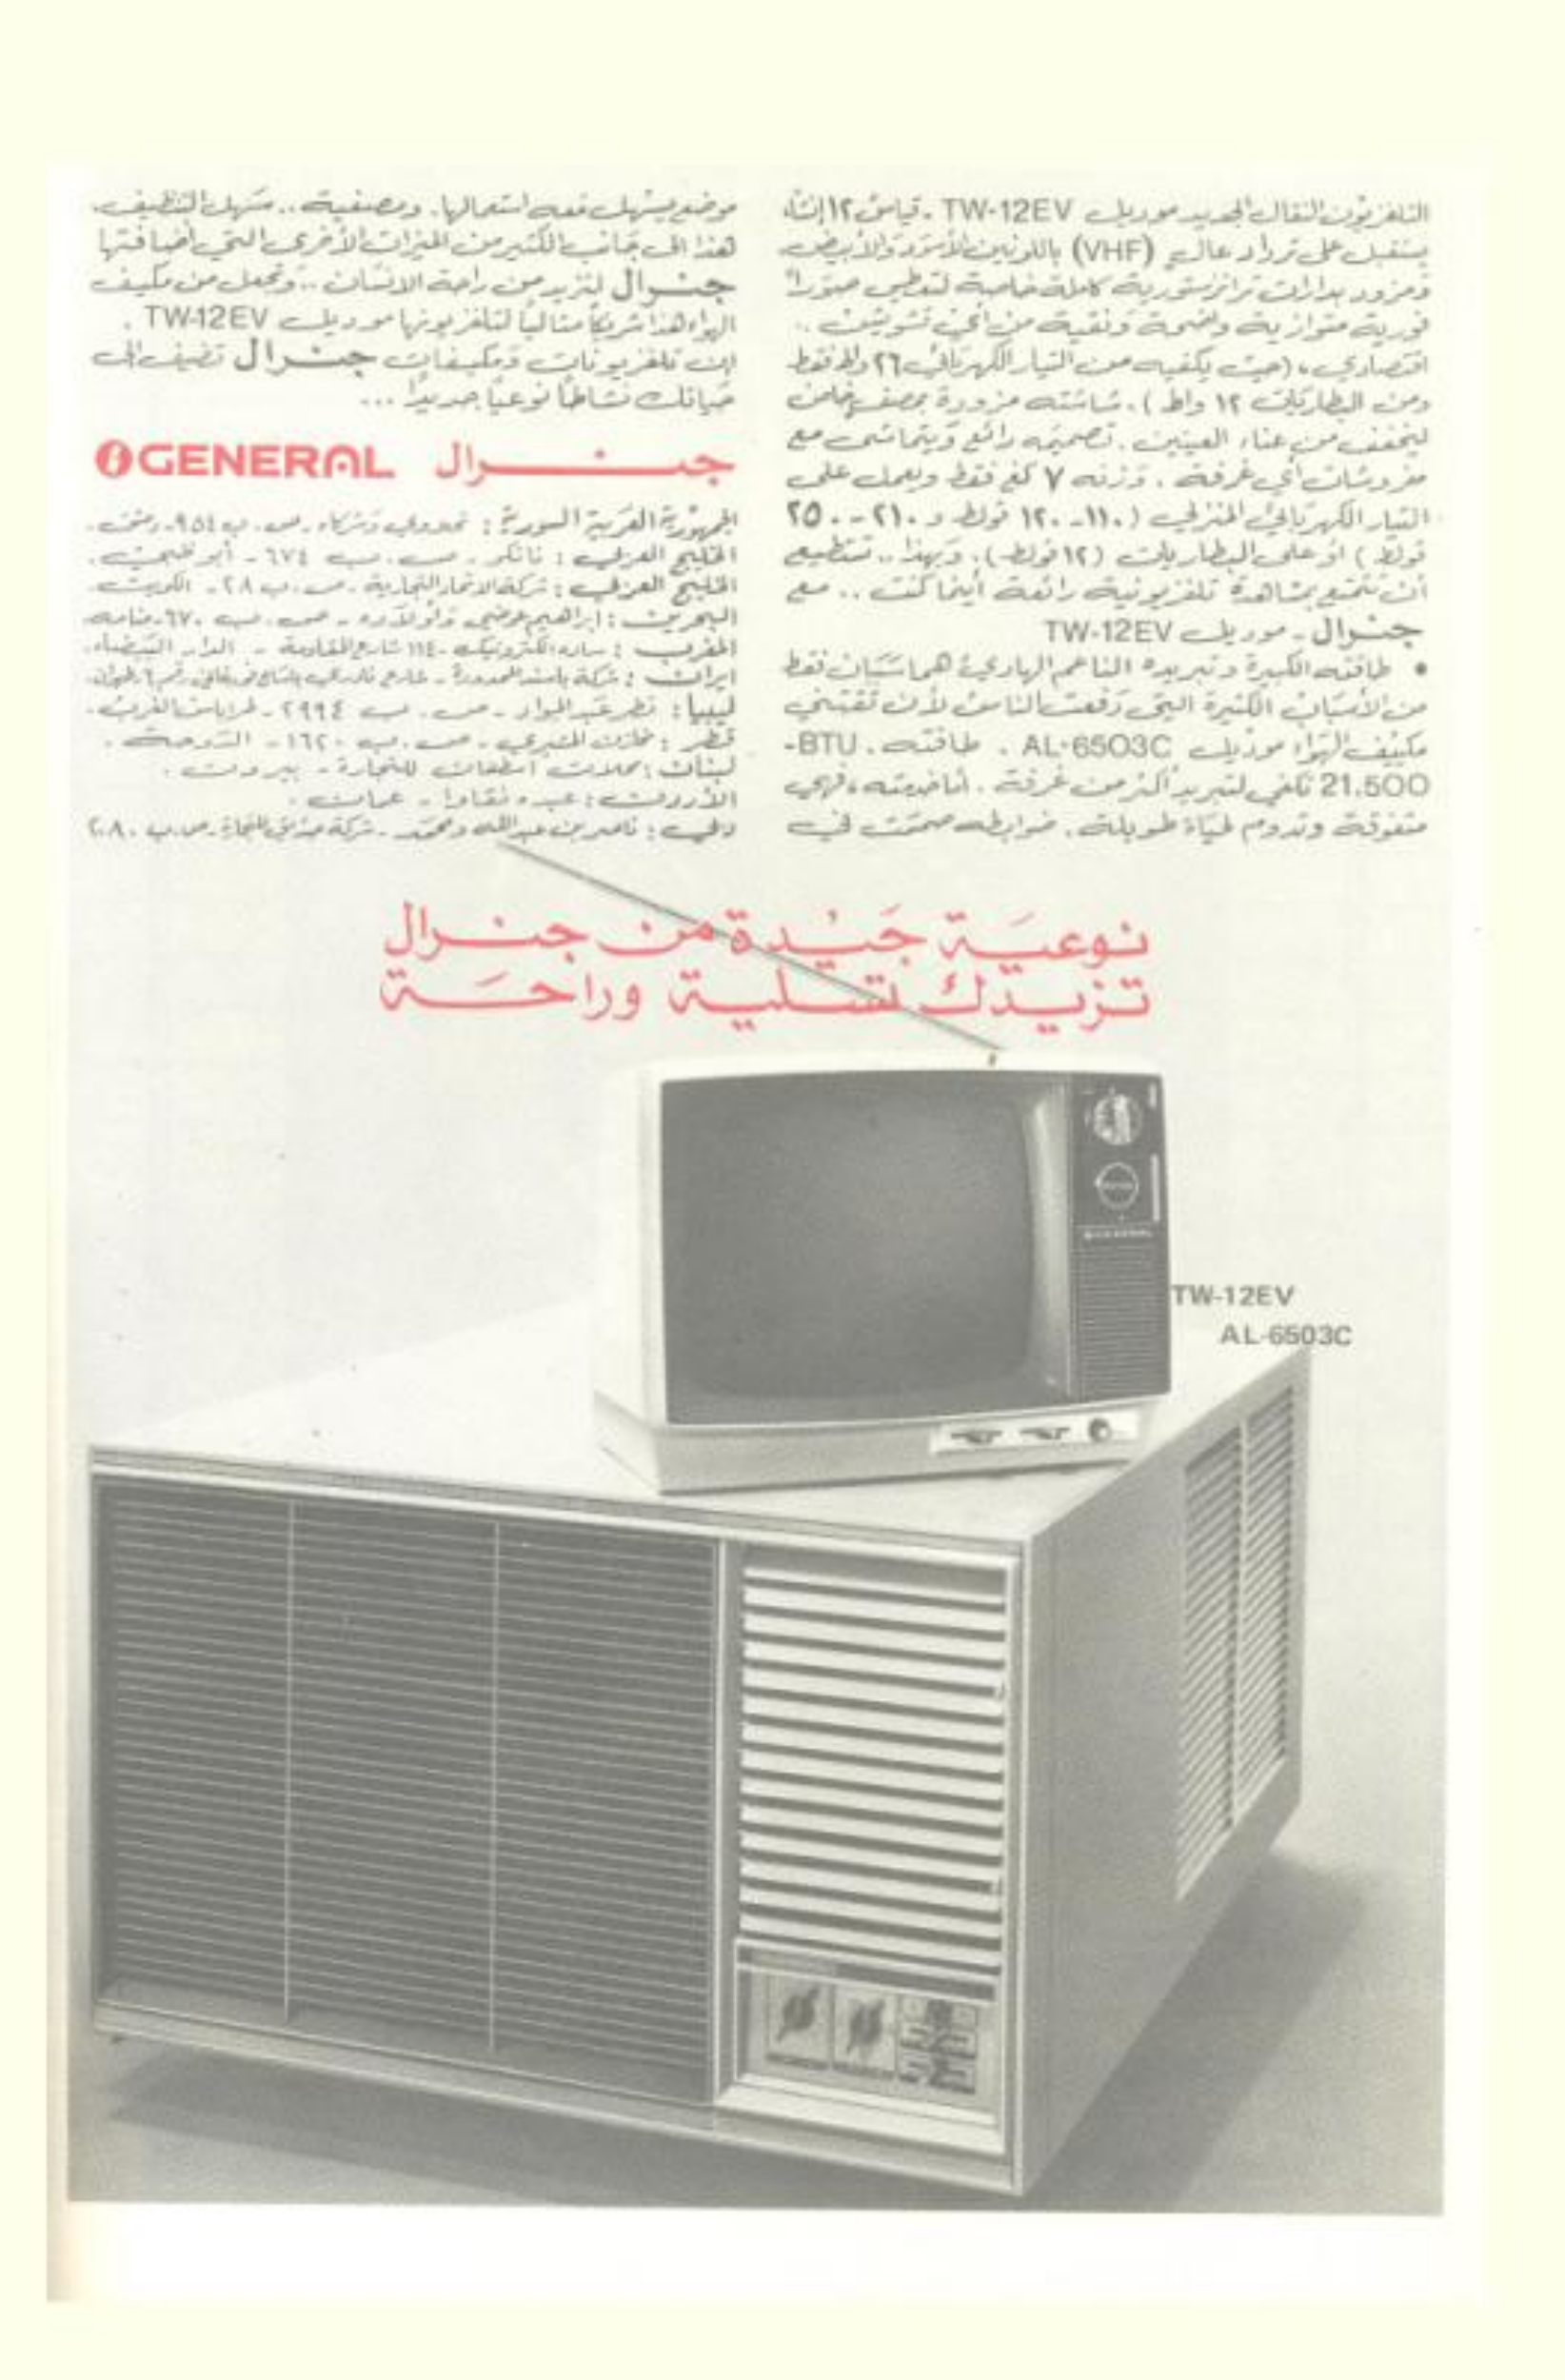 التلفزيون النقال الجديد موديل TW-12EV . قياس ١٢ إنشاً
يستقبل على ترداد عالٍ (VHF) باللونين الأسود والأبيض
ومزود بدارات ترانزستورية كاملة خاصة لتعطي صوراً
فورية متوازية واضحة ونقية من أي تشويش ..
اقتصادي ، (حيث يكفيه من التيار الكهربائي ٢٦ واط فقط
ومن البطاريات ١٢ واط ) . شاشته مزودة بمصفٍ خاص
ليخفف من عناء العينين . تصميمه رائع ويتماشى مع
مفروشات أي غرفة . وزنه ٧ كغ فقط ويعمل على
التيار الكهربائي المنزلي (١١٠ - ١٢٠ فولط و ٢١٠ - ٢٥٠
فولط ) او على البطاريات (١٢ فولط ) . وبهذا .. تستطيع
أن تتمتع بمشاهدة تلفزيونية رائعة أينما كنت .. مع
جنرال - موديل TW-12EV
• طاقته الكبيرة وتبريده الناعم الهادئ هما سببان فقط
من الأسباب الكثيرة التي دفعت الناس لأن تقتني
مكيف الهواء موديل AL-6503C . طاقته . BTU-
21,500 تكفي لتبريد أكثر من غرفة . أما خدمته ، فهي
متفوقة وتدوم لحياة طويلة . ضوابطه صممت في
موضع يسهل معه استعمالها . ومصفيه .. سهل التنظيف .
هذا الى جانب الكثير من الميزات الأخرى التي أضافتها
جنرال لتزيد من راحة الانسان .. وتجعل من مكيف
الهواء هذا شريكاً مثالياً لتلفزيونها موديل TW-12EV .
إن تلفزيونات ومكيفات جنرال تضيف الى
حياتك نشاطاً نوعياً جديداً ...
GENERAL جنرال
الجمهورية العربية السورية : وشركاه - ص . ب ٩٥٤ - دمشق .
الخليج العربي : تانكو - ص . ب ٦٧٤ - أبو ظبي .
الخليج العربي : شركة الاتحاد التجارية - ص . ب ٢٨ - الكويت .
البحرين : ابراهيم عوضي وأولاده - ص . ب ٦٧٠ - منامه .
المغرب : ساره الكترونيك - ١١٤ شارع المقاومة - الدار البيضاء .
ايران : شركة المحدودة - شارع
ليبيا : عبد الجواد - ص . ب ٢٩٩٤ - طرابلس الغرب .
قطر : مخازن - ص . ب ١٦٢٠ - الدوحة .
لبنان : محلات اسطفان للتجارة - بيروت .
الأردن : عبده نقاوا - عمان .
دبي : ناصر بن عبد الله ومحمد - شركة للتجارة - ص . ب ٢٠٨٠
نوعية جيدة من جنرال
تزيدك تسلية وراحة
GENERAL
TW-12EV
AL-6503C